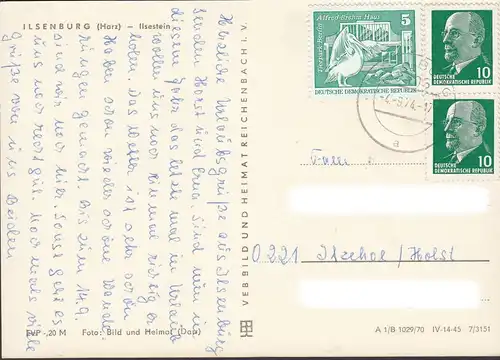 ILSENBURG (Harz) — Ilsestein
Herzliche Urlaubsgrüße aus Ilsenburg
senden Horst und Erna. Sind nun in
diesem Jahr das letzte mal in Urlaub
wollen uns noch einmal richtig er
holen. Das Wetter ist sehr schön
Haben schon wieder schöne Wande-
rungen gemacht. Bis zum 14.9.
sind wir noch hier. Sonst geht es
uns noch recht gut. Nochmals viele
Grüße von uns Beiden
EVP -,20 M Foto: Bild und Heimat (Dap)
VEB BILD UND HEIMAT REICHENBACH I. V.
Alfred-Brehm-Haus
5
Tierpark Berlin
DEUTSCHE DEMOKRATISCHE REPUBLIK
10
DEUTSCHE
DEMOKRATISCHE
REPUBLIK
10
DEUTSCHE
DEMOKRATISCHE
REPUBLIK
-4.-9.74-
a
0221 Itzehoe/Holst
A 1/B 1029/70 IV-14-45 7/3151